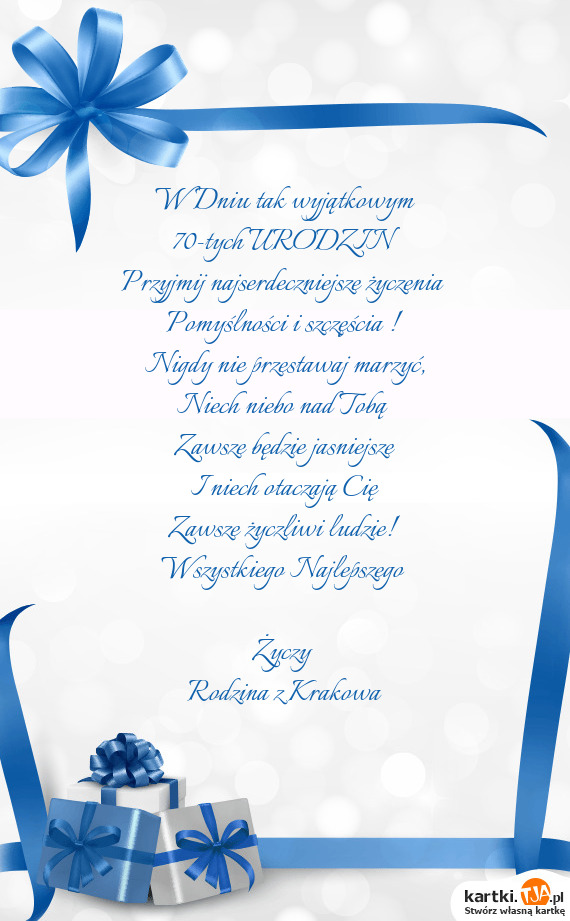 W Dniu tak wyjątkowym
70-tych URODZIN
Przyjmij najserdeczniejsze życzenia
Pomyślności i szczęścia !
Nigdy nie przestawaj marzyć,
Niech niebo nad Tobą
Zawsze będzie jasniejsze
I niech otaczają Cię
Zawsze życzliwi ludzie!
Wszystkiego Najlepszego
Życzy
Rodzina z Krakowa
kartki.TJA.pl
Stwórz własną kartkę